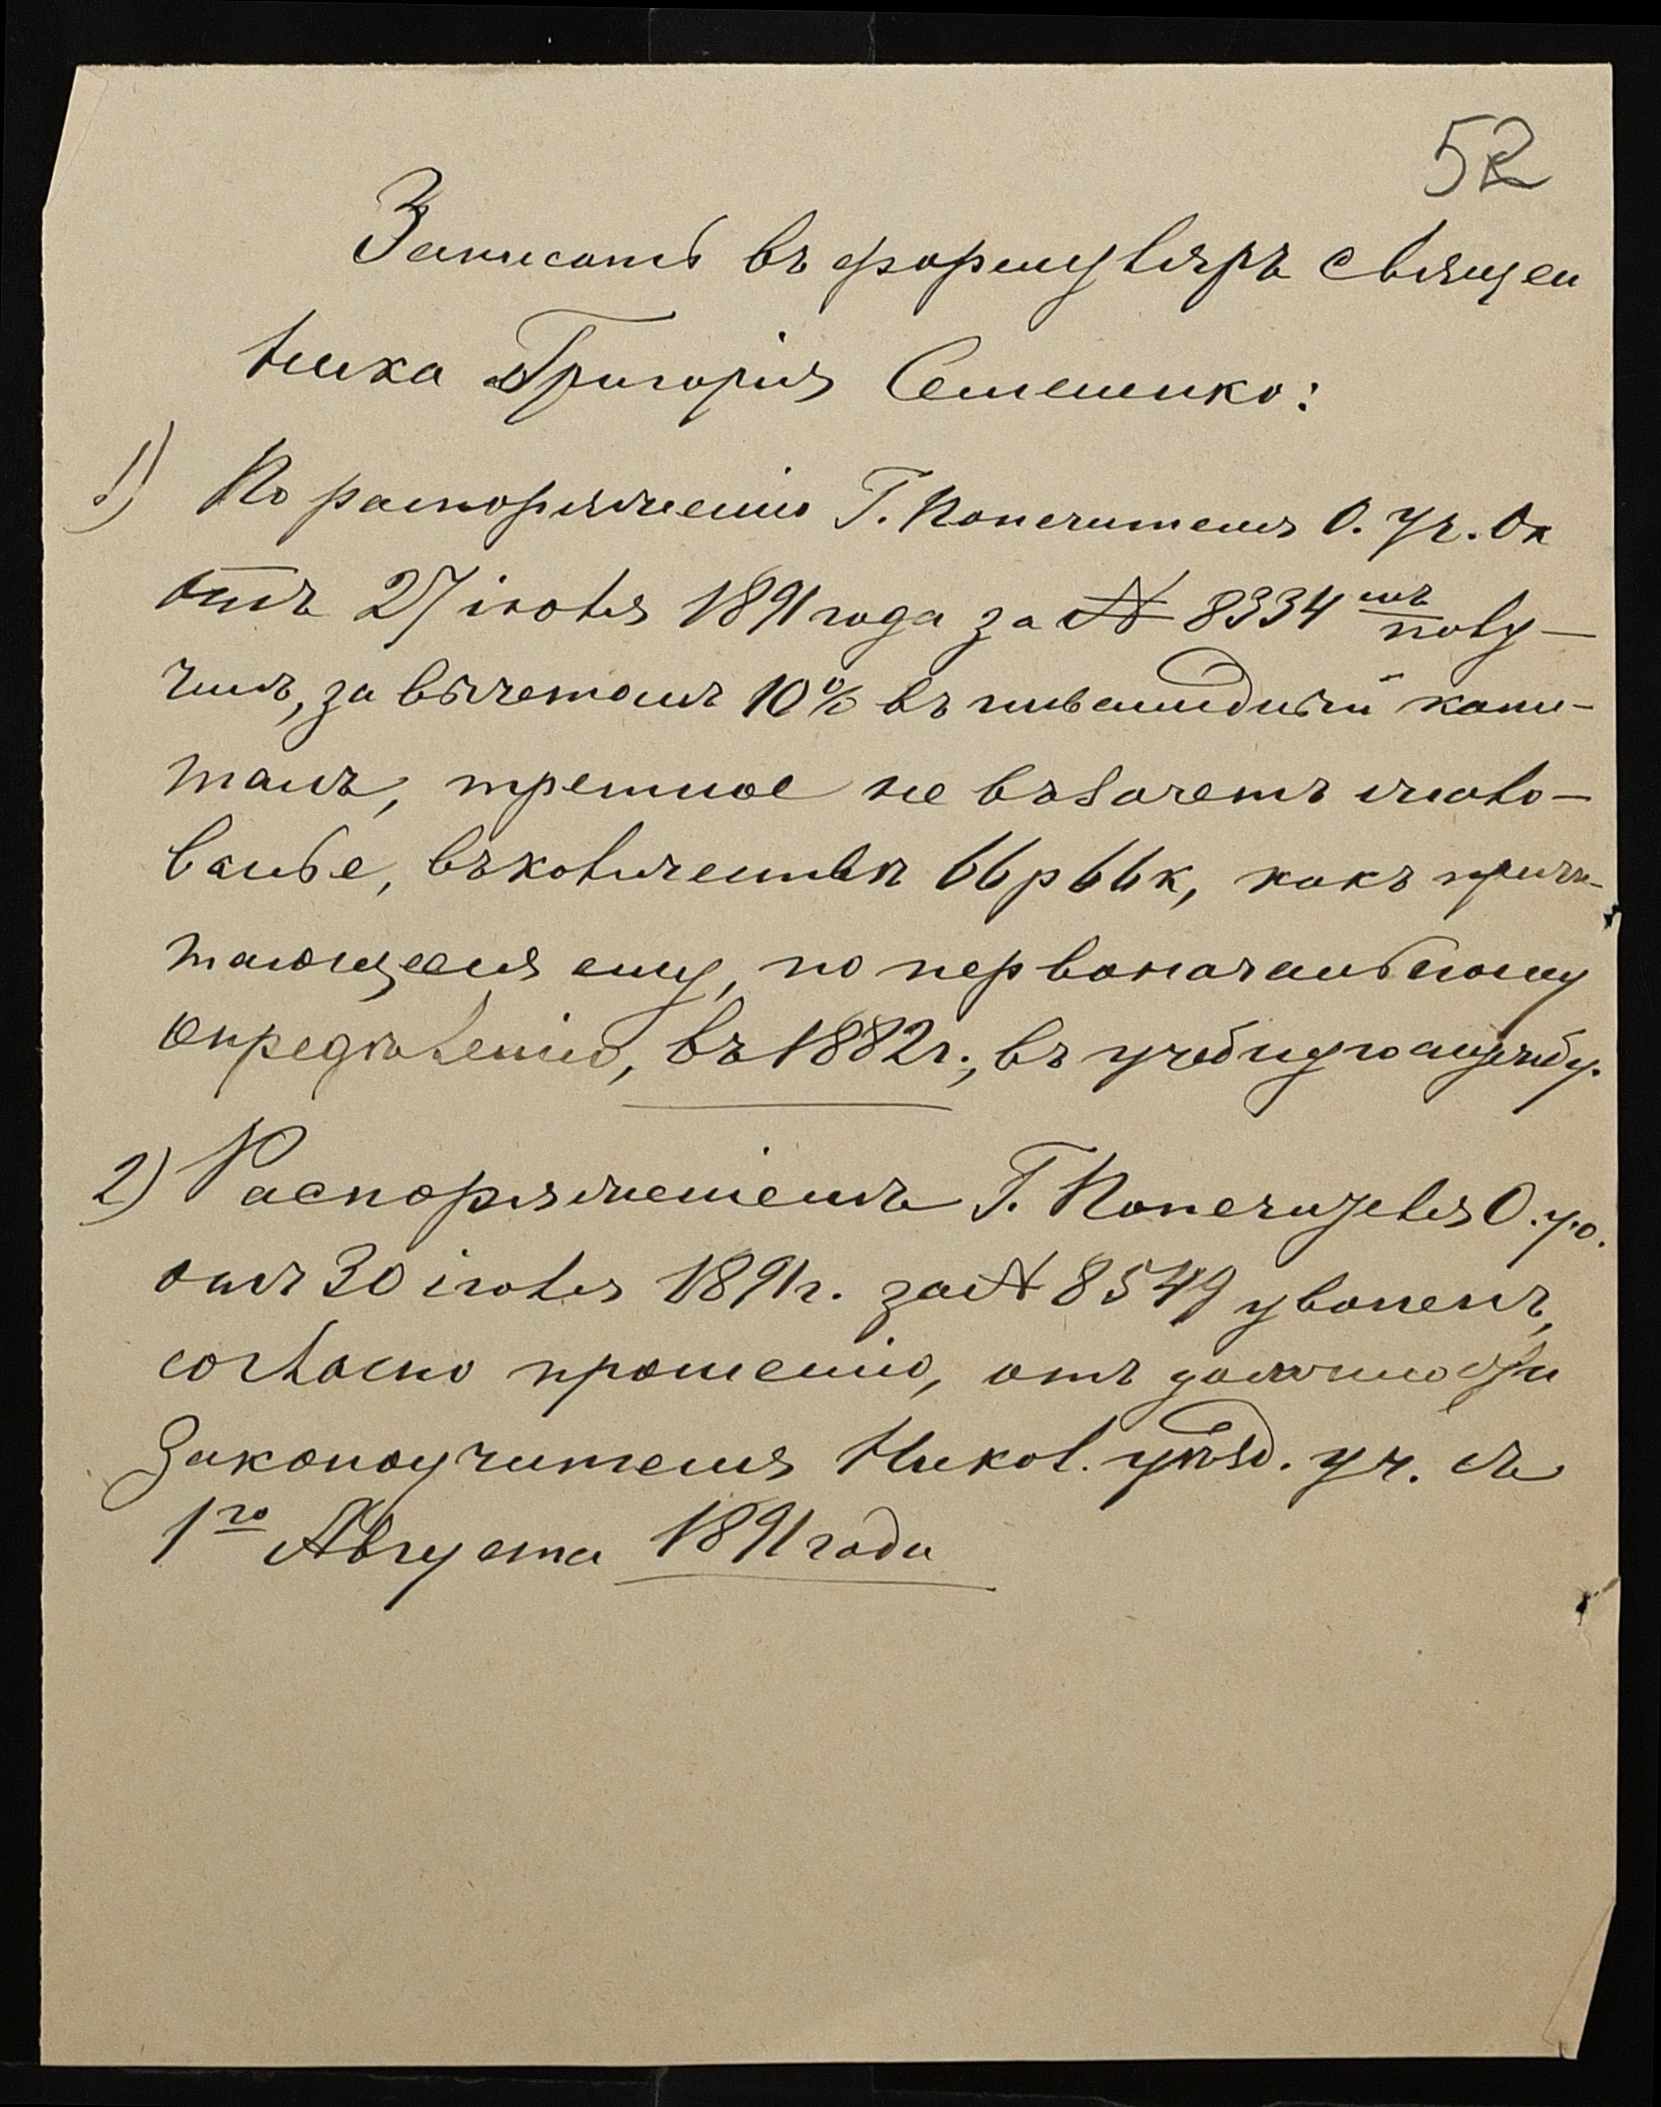 52
Записать въ формуляръ священ
ника Григорія Семененко:
1) По распоряженію Г. Попечителя О. Уч. Ок
отъ 27 іюля 1891 года за № 8334мъ полу-
чилъ, за вычетомъ 10% въ инвалидный капи-
талъ, третное не въ зачетъ жало-
ванье, въ количествѣ 66 р 66 к, какъ причи-
тающееся ему, по первоначальному
опредѣленію, въ 1882 г., въ учебную службу.
2) Распоряженіемъ Г. Попечителя О. у. о.
отъ 30 іюля 1891 г. за № 8549 уволенъ,
согласно прошенію, отъ должности
Законоучителя Никол. уѣзд. уч. съ
1го Августа 1891 года